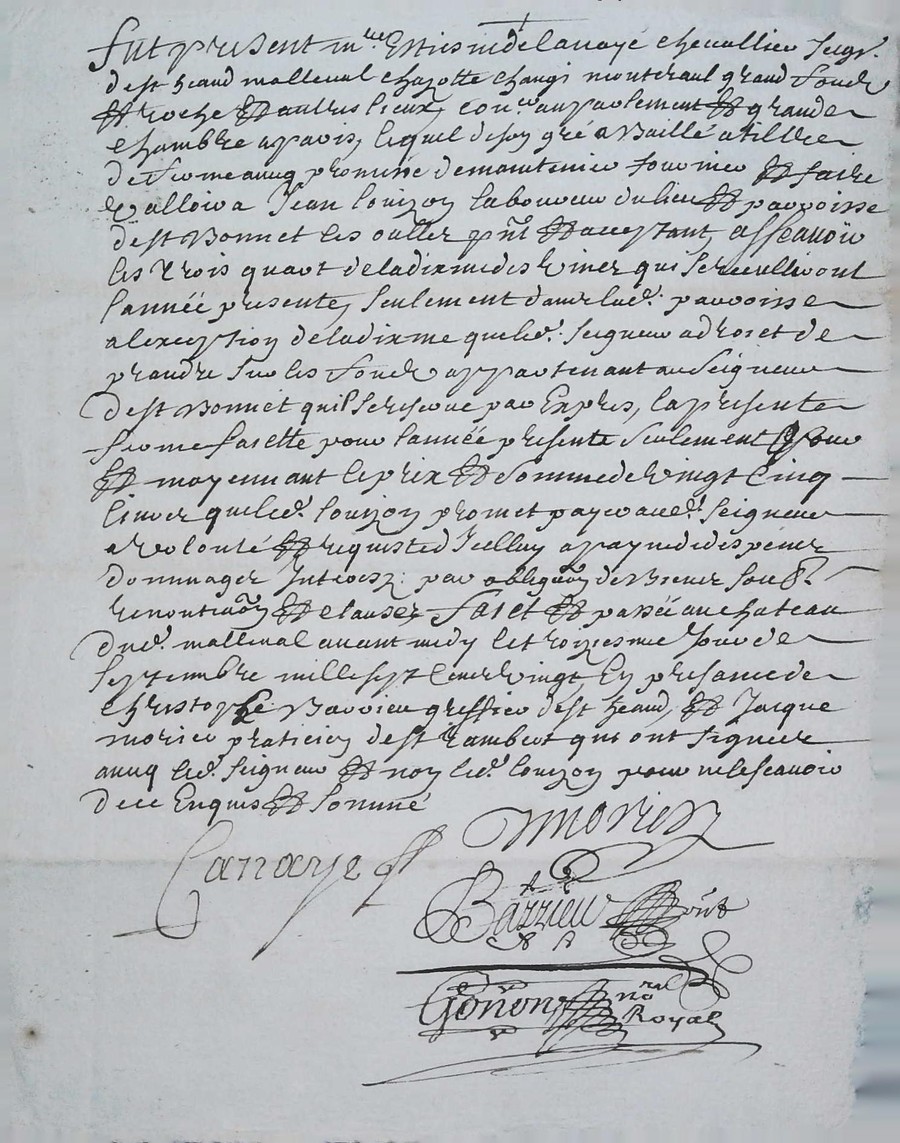 fut present mre Estienne de lanaye chevallier seigr.
de st heand malleval chazotte changi montraul grand fond
et roche et autres lieux, coner. au parlement et grande
chambre a paris, lequel de son gré a baillé a tiltre
de ferme avuq promesse de maintenir fournier et faire
valloir a Jean louizon laboureur du lieu et parroisse
de st bonnet les oulles pnt et acceptant, assçavoir
les trois quart de la dixme des vines qui se ceullieront
l'année presente, seulement dans lad. parroisse
a lexception de la dixme que led. seigneur a droict de
prandre sur les fondz appartenant au seigneur
de st bonnet quil se reserve par Expres, la presente
ferme faictte pour l'année presente seulement pour
et moyennant le prix et somme de vingt cinq
livres que led. louizon promet payer aud. seigneur
a volonté et requiste d'Icelluy a payne de despens
dommages Interestz par obligaon de biens soub.
renontiaon et clauses faict et passé au chateau
dud. malleval avant midy le troiziesme jour de
septembre mille sept cent vingt En presance de
christophe Barrieu greffier de st heand, et Jacque
morier praticien de st rambert qui ont signees
avuq led. seigneur et non led. louizon pour ne le scavoir
de ce Enquis et sommé
Canaye
morier
Barrieu
Gonon nore
Royal